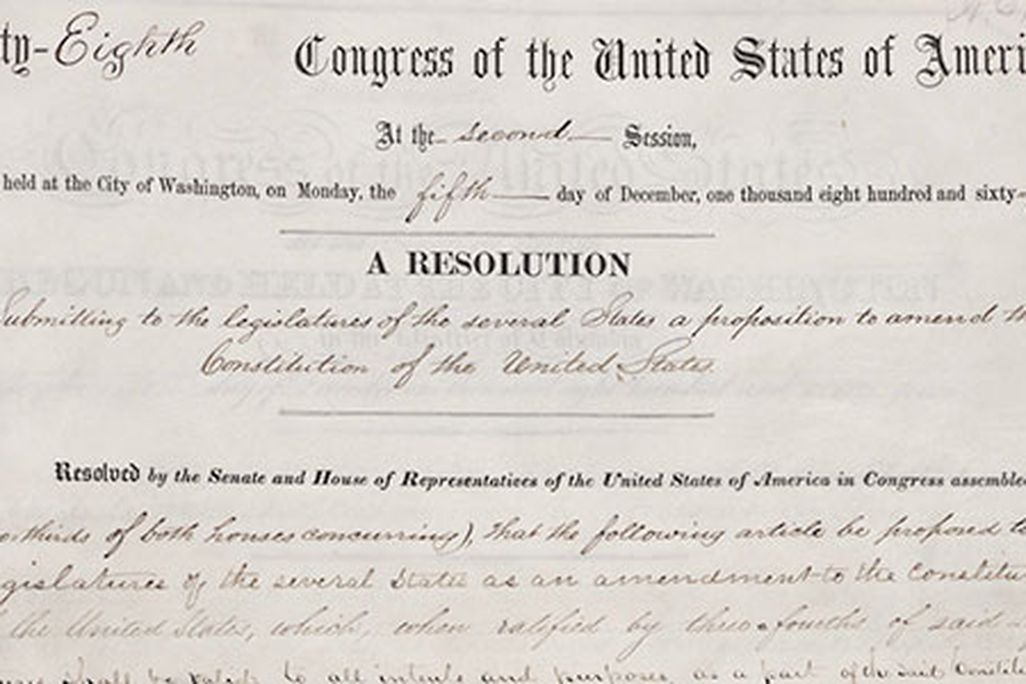 ty-Eighth Congress of the United States of Ameri
At the second Session,
held at the City of Washington, on Monday, the fifth day of December, one thousand eight hundred and sixty-
A RESOLUTION
Submitting to the legislatures of the several States a proposition to amend th
Constitution of the United States.
Resolved by the Senate and House of Representatives of the United States of America in Congress assemble
o-thirds of both houses concurring), that the following article be proposed t
gislatures of the several States as an amendment to the Constitu
the United States, which, when ratified by three-fourths of said
shall be valid, to all intents and purposes, as a part of the said Constitu